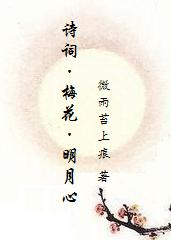 诗词·梅花·明月心
微雨苔上痕 著